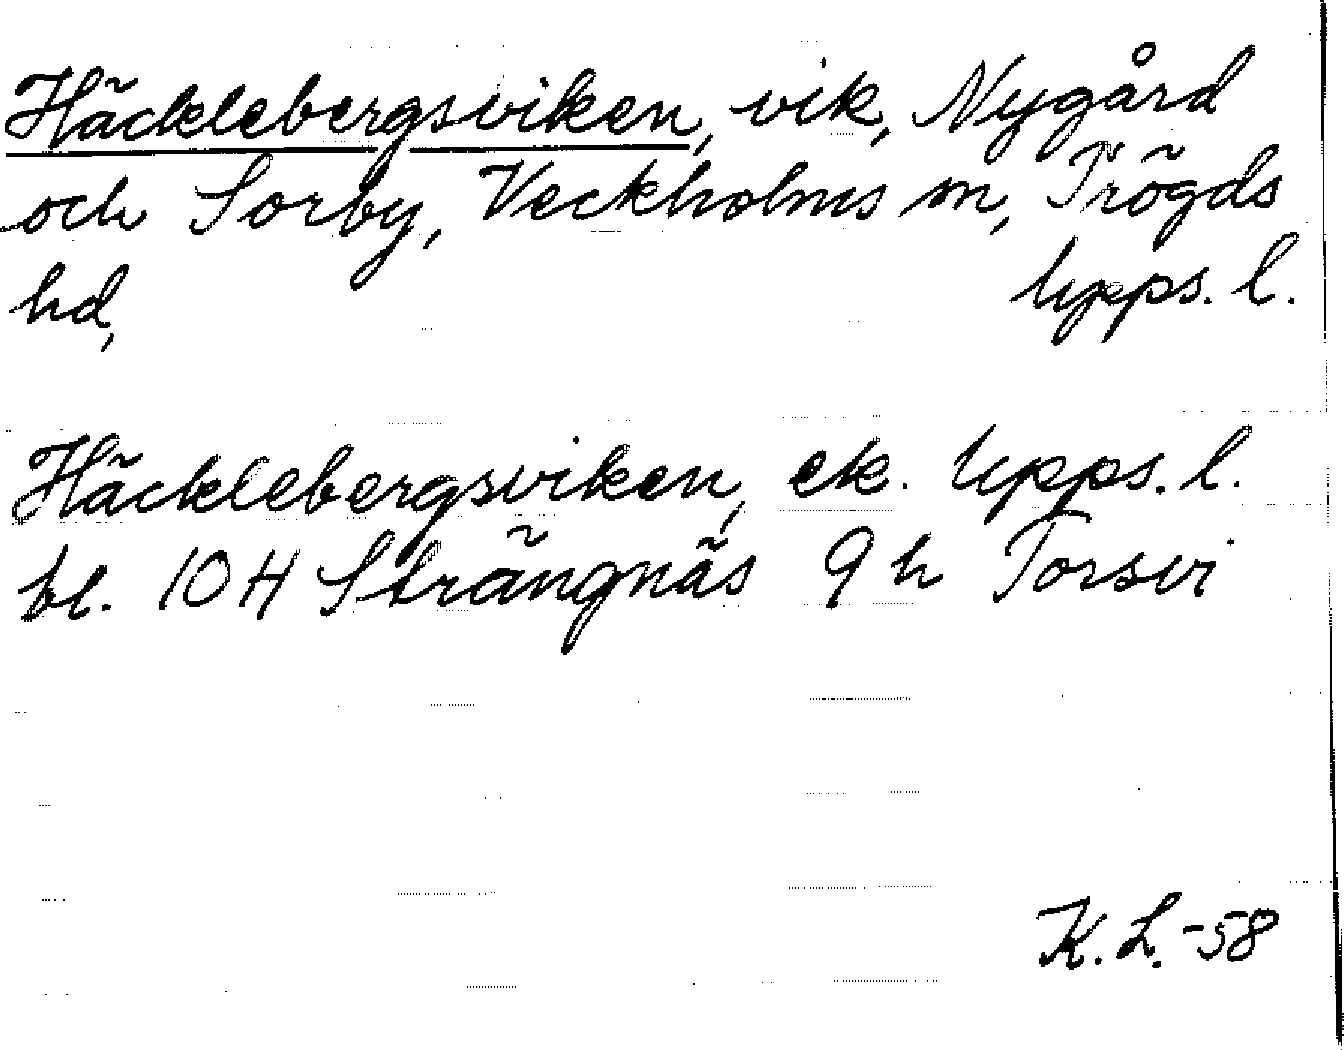 Häcklebergsviken, vik, Nygård
och Sorby, Veckholms sn, Trögds
hd, Upps. l.
Häcklebergsviken, ek. Upps. l.
bl. 10 H Strängnäs 9 h Torsvi
K. L. -58